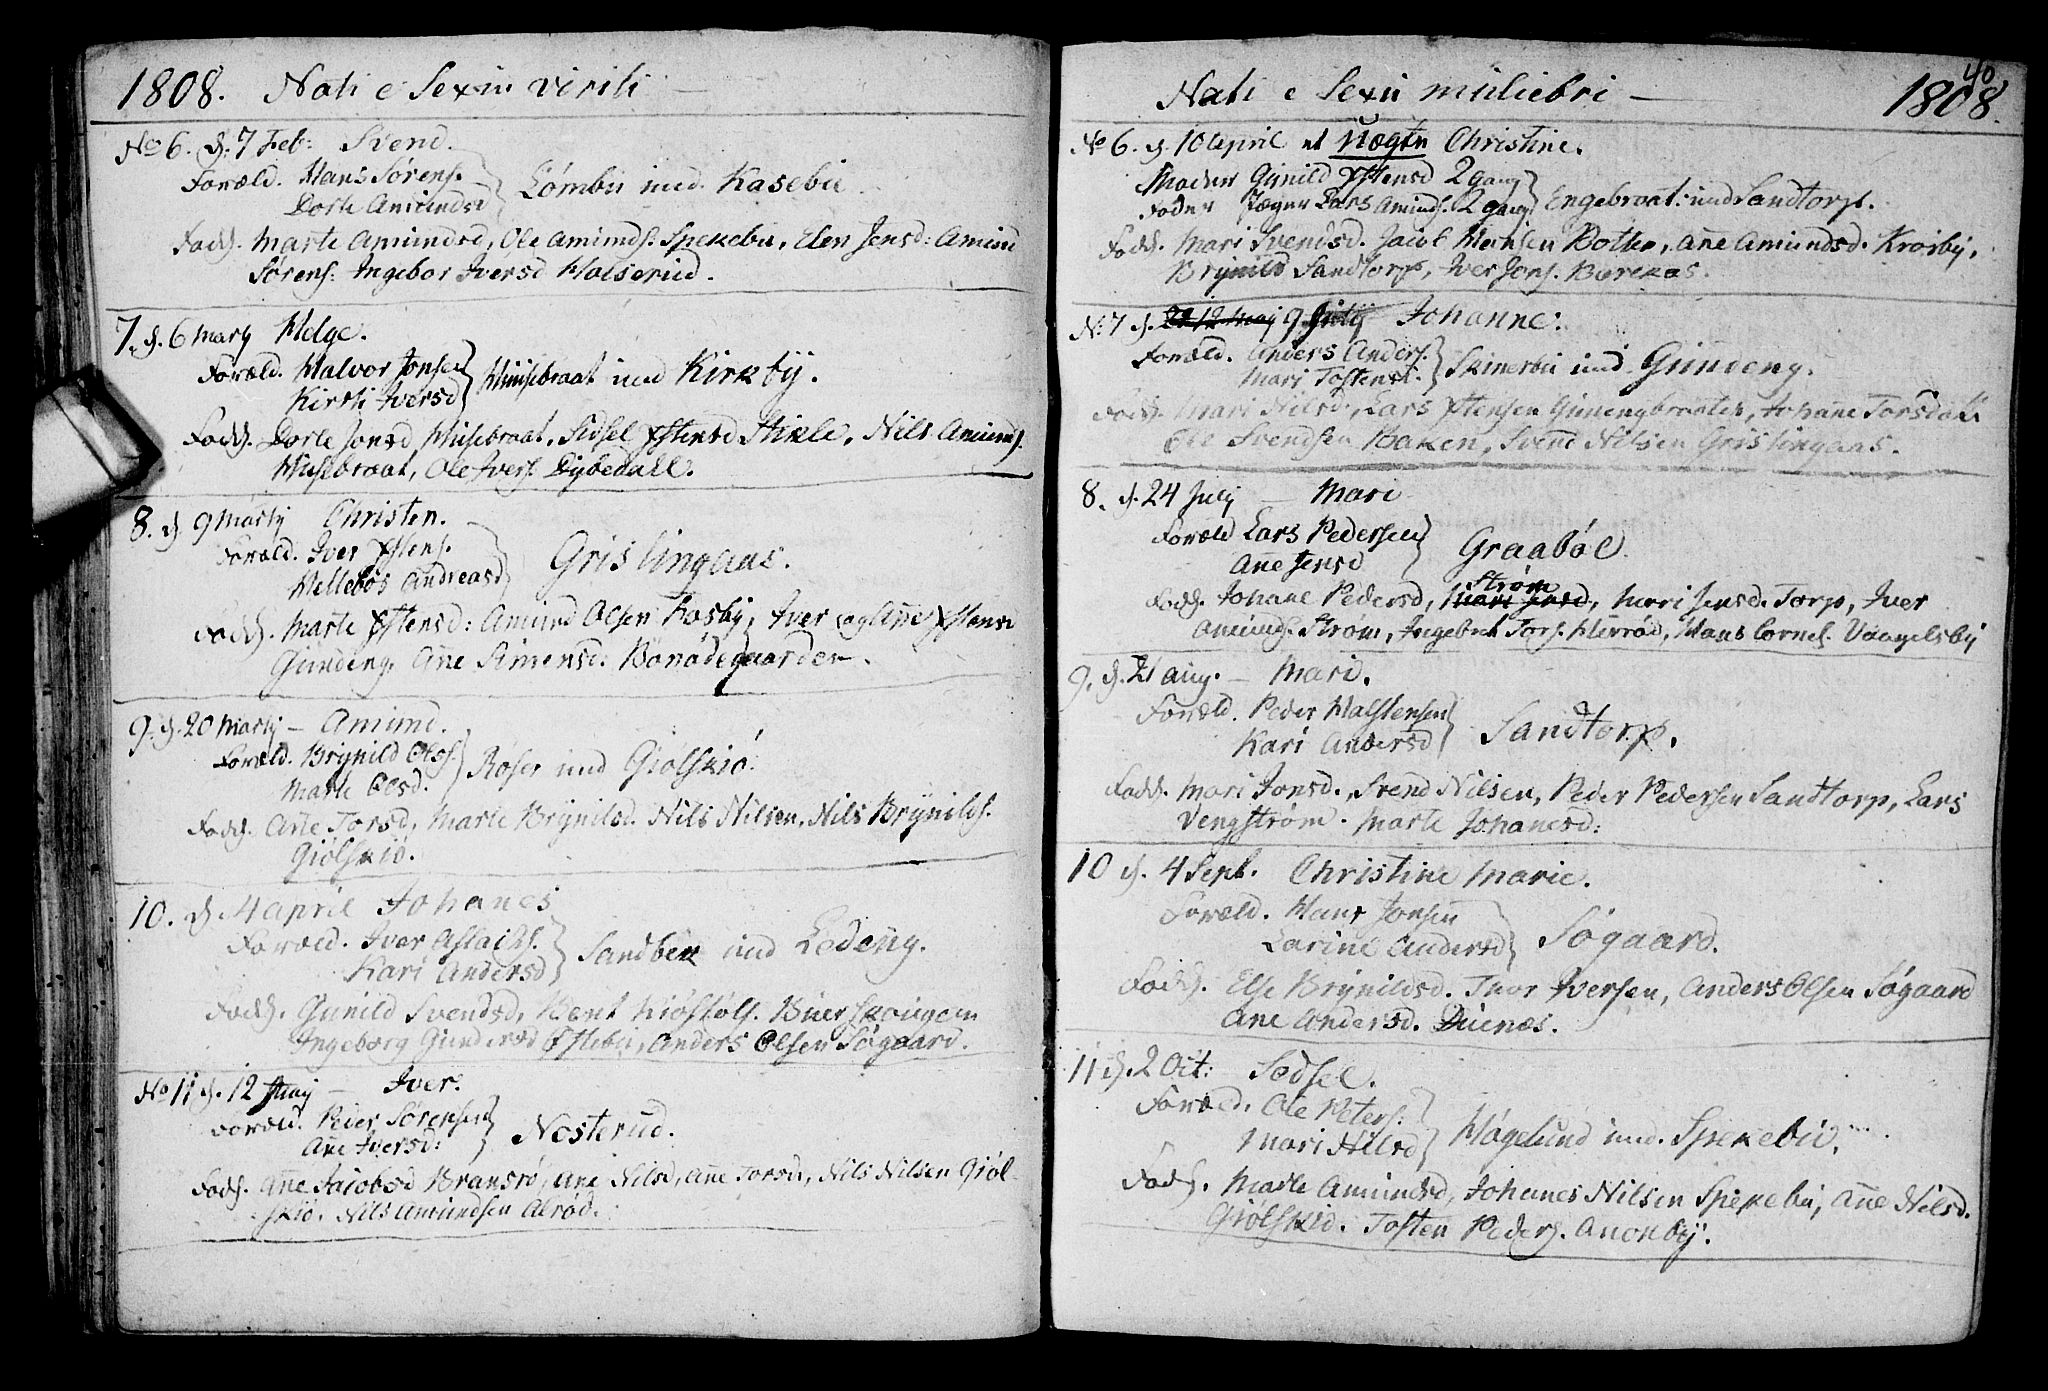 1808. Nati e Sexu virili —
No 6. d: 7 Feb: Svend.
Foræld. Hans Sørens.
Dorte Amundsd } Lømbu und. Kasebu
Fadd. Marte Amundsd, Ole Amunds. Spekebu, Elen Jensd: Amund
Sørens: Ingebor Iversd Holserud.
7. d. 6 Marty Helge.
Foræld. Halvor Jonsen
Kirsti Iversd } Husebraat und Kirkby.
Fadd. Dorte Jonsd Husebraat, Sidsel Ostensd Stikle, Nils Amunds.
Husebraat, Ole Ivers. Dybedall.
8. d 9 Marty Christen.
Foræld. Iver Ostens.
Hellebor Andreasd } Grislingaas.
Fadd. Marte Ostensd: Amund Olsen Kosby, Iver og Anne Ostensd
Gundeng. Ane Simensd: Bonødegaarden.
9. d. 20 Marty — Amund.
Foræld. Brynild Olss.
Marte Olsd. } Røser und Giølskiø.
Fadd. Anne Torsd, Marte Brynilsd. Nils Nilsen, Nils Brynilds.
Giølskiø.
10. d 4 April Johanes
Foræld. Iver Aslachs.
Kari Andersd } Sandbek und Ledeng.
Fadd. Gunild Svendsd, Bent Kiøstols. Buerskougen
Ingeborg Gundersd Østebu, Anders Olsen Søgaard.
No 11 d. 12 May — Iver.
Foræld. Peder Sørensen
Ane Iversd: } Nosterud.
Fadd. Anne Jacobsd Bransrø, Ane Nilsd, Anne Torsd, Nils Nilsen Giøl-
skiø. Nils Amundsen Alrød.
40
Nati e Sexu muliebri — 1808.
No 6. d. 10 April et uægte Christine.
Moder Gunild Ostensd 2 gang
Fader Jæger Lars Amunds. 2 gang } Engebraat: und Sandtorp.
Fadd. Mari Svendsd. Jacob Hansen Bothe, Ane Amundsd. Krosby,
Brynild Sandtorp, Iver Jons. Burekas.
No 7 d. 12 May 9 July Johanne:
Foræld. Anders Anders.
Mari Tostensd. } Skinerbu und Gundeng.
Fadd. Mari Nilsd, Lars Ostensen Gunengbraaten, Johane Torsd
Ole Svendsen Baken, Svend Nilsen Grislingaas.
8. d. 24 July — Mari
Foræld Lars Pedersen
Ane Jensd } Graabøl.
Strøm
Fadd. Johane Pedersd, Mari Jensd, Mari Jensd. Torp, Iver
Amunds. Strøm, Ingebret Tors. Herrød, Hans Cornel. Vangelsby
9. d. 21 Aug. — Mari.
Foræld. Peder Halstensen
Kari Andersd } Sandtorp.
Fadd. Mari Jonsd., Svend Nilsen, Peder Pedersen Sandtorp, Lars
Vengstrøm. Marte Johanesd:
10 d. 4 Sept. Christine Marie.
Foræld. Hans Jonsen
Larine Andersd } Søgaard.
Fadd. Else Brynildsd. Iver Iversen, Anders Olsen Søgaard
Ane Andersd. Duenæs.
11 d. 2 Oct: Sodsel.
Foræld. Ole Peters:
Mari Nilsd } Høgelund und. Spekebu.
Fadd. Marte Amundsd, Johanes Nilsen Spekebu, Anne Nilsd.
Giølskiø. Tosten Peders. Anonby.